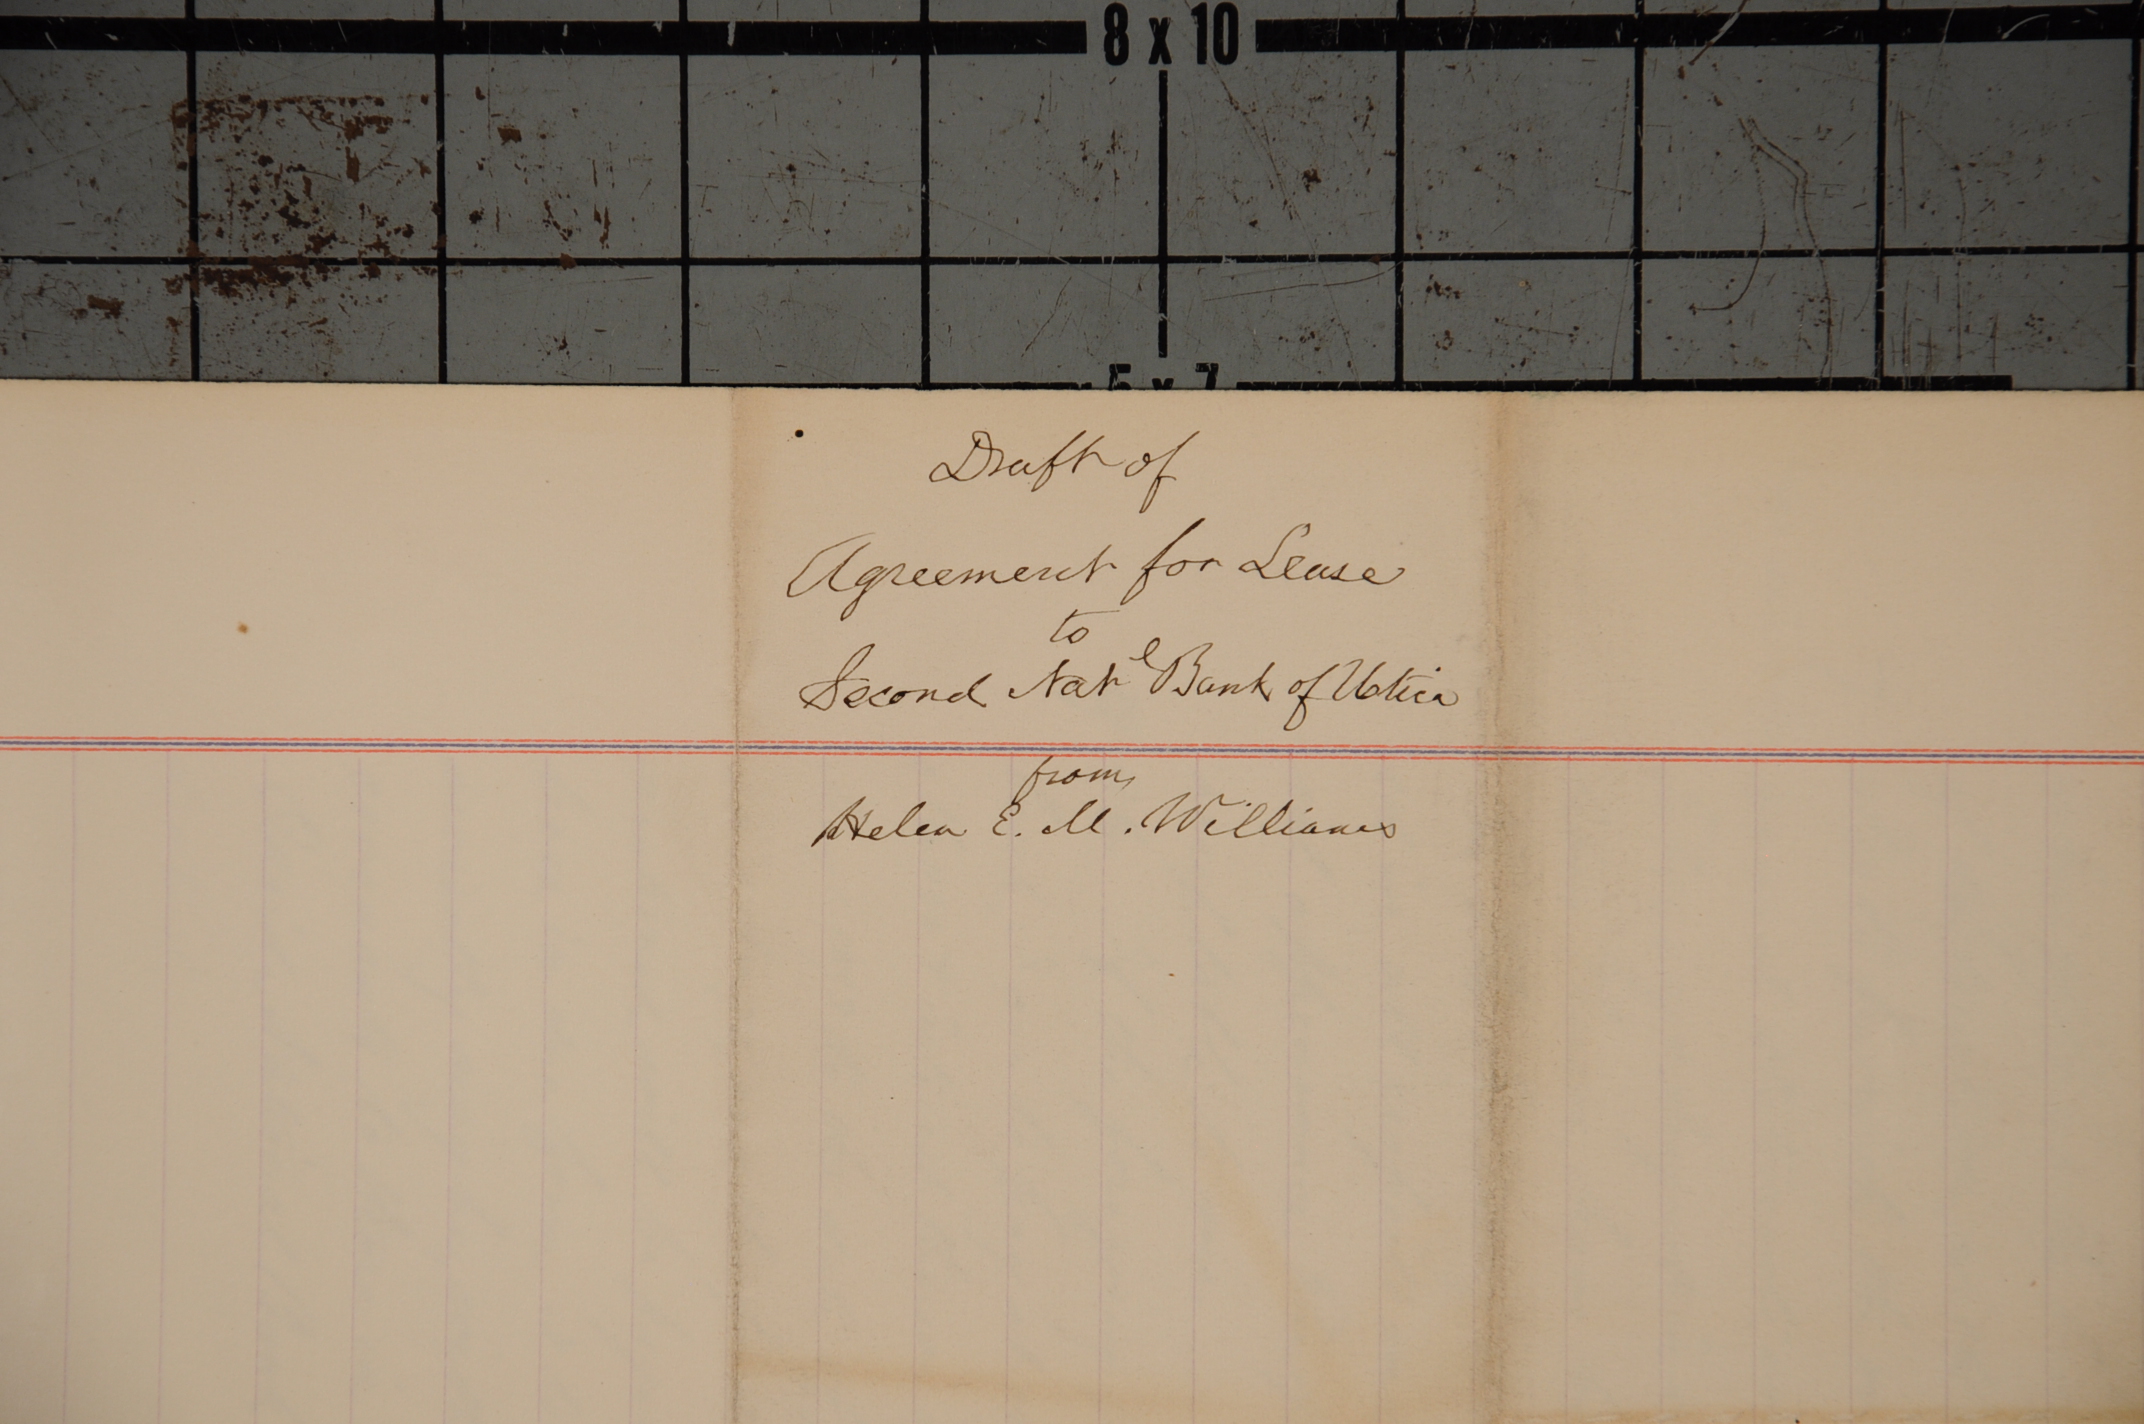 8 x 10
5 x 7
Draft of
Agreement for Lease
to
Second Natl Bank of Utica
from
Helen E. M. Williams